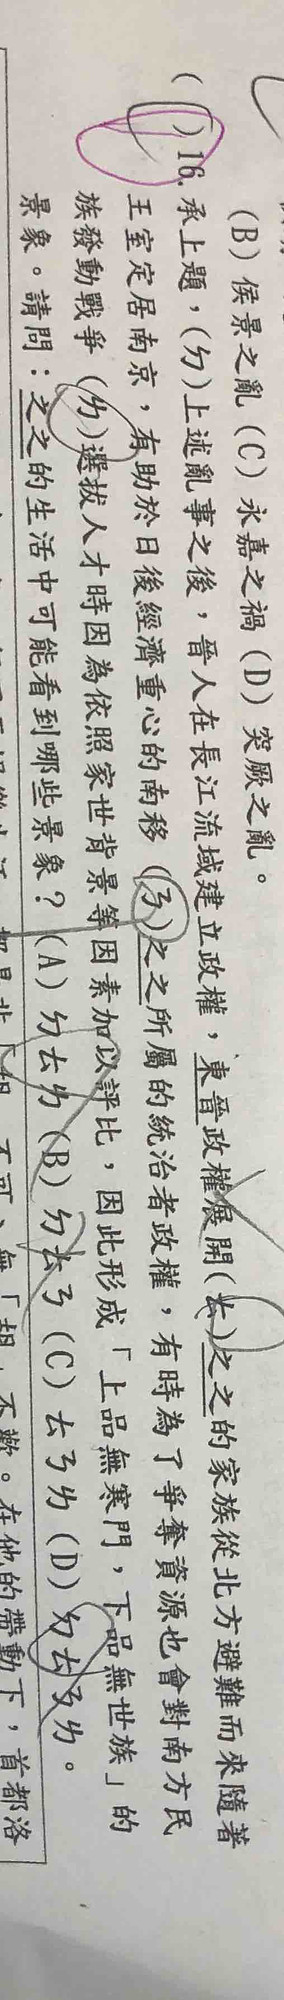 (B)侯景之亂(C)永嘉之禍(D)突厥之亂。
( )16. 承上題，(ㄉ)上述亂事之後，晉人在長江流域建立政權，東晉政權展開(ㄊ)之之的家族從北方避難而來隨著
王室定居南京，有助於日後經濟重心的南移(ㄋ)之之所屬的統治者政權，有時為了爭奪資源也會對南方民
族發動戰爭(ㄌ)選拔人才時因為依照家世背景等因素加以評比，因此形成「上品無寒門，下品無世族」的
景象。請問：之之的生活中可能看到哪些景象？(A)ㄉㄊㄌ(B)ㄉㄊㄋ(C)ㄊㄋㄌ(D)ㄉㄊㄋㄌ。
「胡」不可、無「胡」不歡。在他的帶動下，首都洛